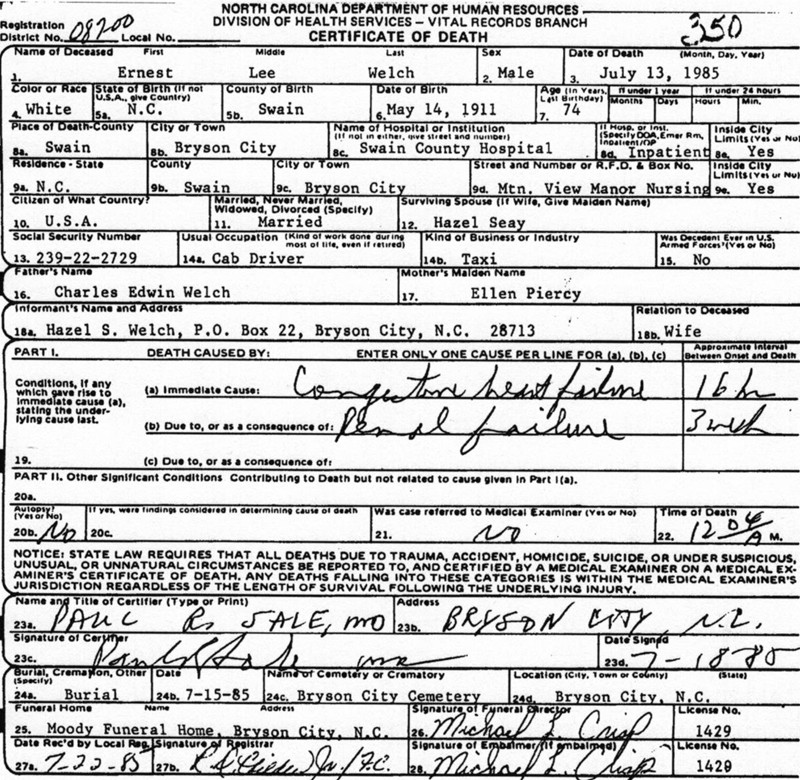 NORTH CAROLINA DEPARTMENT OF HUMAN RESOURCES
DIVISION OF HEALTH SERVICES – VITAL RECORDS BRANCH
Registration District No. 08200 Local No. CERTIFICATE OF DEATH 350
Name of Deceased First Middle Last Sex Date of Death (Month, Day, Year)
1. Ernest Lee Welch 2. Male 3. July 13, 1985
Color or Race State of Birth (If not U.S.A., give Country) County of Birth Date of Birth Age (In Years, Last Birthday) If under 1 year If under 24 hours
Months Days Hours Min.
4. White 5a. N.C. 5b. Swain 6. May 14, 1911 7. 74
Place of Death-County City or Town Name of Hospital or Institution (If not in either, give street and number) If Hosp. or Inst. (Specify DOA, Emer Rm, Inpatient/OP Inside City Limits (Yes or No)
8a. Swain 8b. Bryson City 8c. Swain County Hospital 8d. Inpatient 8e. Yes
Residence - State County City or Town Street and Number or R.F.D. & Box No. Inside City Limits (Yes or No)
9a. N.C. 9b. Swain 9c. Bryson City 9d. Mtn. View Manor Nursing 9e. Yes
Citizen of What Country? Married, Never Married, Widowed, Divorced (Specify) Surviving Spouse (If Wife, Give Maiden Name)
10. U.S.A. 11. Married 12. Hazel Seay
Social Security Number Usual Occupation (Kind of work done during most of life, even if retired) Kind of Business or Industry Was Decedent Ever in U.S. Armed Forces? (Yes or No)
13. 239-22-2729 14a. Cab Driver 14b. Taxi 15. No
Father's Name Mother's Maiden Name
16. Charles Edwin Welch 17. Ellen Piercy
Informant's Name and Address Relation to Deceased
18a. Hazel S. Welch, P.O. Box 22, Bryson City, N.C. 28713 18b. Wife
PART I. DEATH CAUSED BY: ENTER ONLY ONE CAUSE PER LINE FOR (a), (b), (c) Approximate Interval Between Onset and Death
Conditions, if any which gave rise to immediate cause (a), stating the underlying cause last.
(a) Immediate Cause: Congestive heart failure 16 h
(b) Due to, or as a consequence of: Renal failure 3 wk
19. (c) Due to, or as a consequence of:
PART II. Other Significant Conditions Contributing to Death but not related to cause given in Part I(a).
20a.
Autopsy? (Yes or No) If yes, were findings considered in determining cause of death Was case referred to Medical Examiner (Yes or No) Time of Death
20b. No 20c. 21. NO 22. 12 04 A M.
NOTICE: STATE LAW REQUIRES THAT ALL DEATHS DUE TO TRAUMA, ACCIDENT, HOMICIDE, SUICIDE, OR UNDER SUSPICIOUS,
UNUSUAL, OR UNNATURAL CIRCUMSTANCES BE REPORTED TO, AND CERTIFIED BY A MEDICAL EXAMINER ON A MEDICAL EX-
AMINER'S CERTIFICATE OF DEATH. ANY DEATHS FALLING INTO THESE CATEGORIES IS WITHIN THE MEDICAL EXAMINER'S
JURISDICTION REGARDLESS OF THE LENGTH OF SURVIVAL FOLLOWING THE UNDERLYING INJURY.
Name and Title of Certifier (Type or Print) Address
23a. PAUL R. SALE, MD 23b. BRYSON CITY, N.C.
Signature of Certifier Date Signed
23c. Paul R Sale MD 23d. 7-18 85
Burial, Cremation, Other (Specify) Date Name of Cemetery or Crematory Location (City, Town or County) (State)
24a. Burial 24b. 7-15-85 24c. Bryson City Cemetery 24d. Bryson City, N.C.
Funeral Home Name Address Signature of Funeral Director License No.
25. Moody Funeral Home, Bryson City, N.C. 26. Michael L. Crisp 1429
Date Rec'd by Local Reg. Signature of Registrar Signature of Embalmer (If embalmed) License No.
27a. 7-22-85 27b. 28. Michael L. Crisp 1429